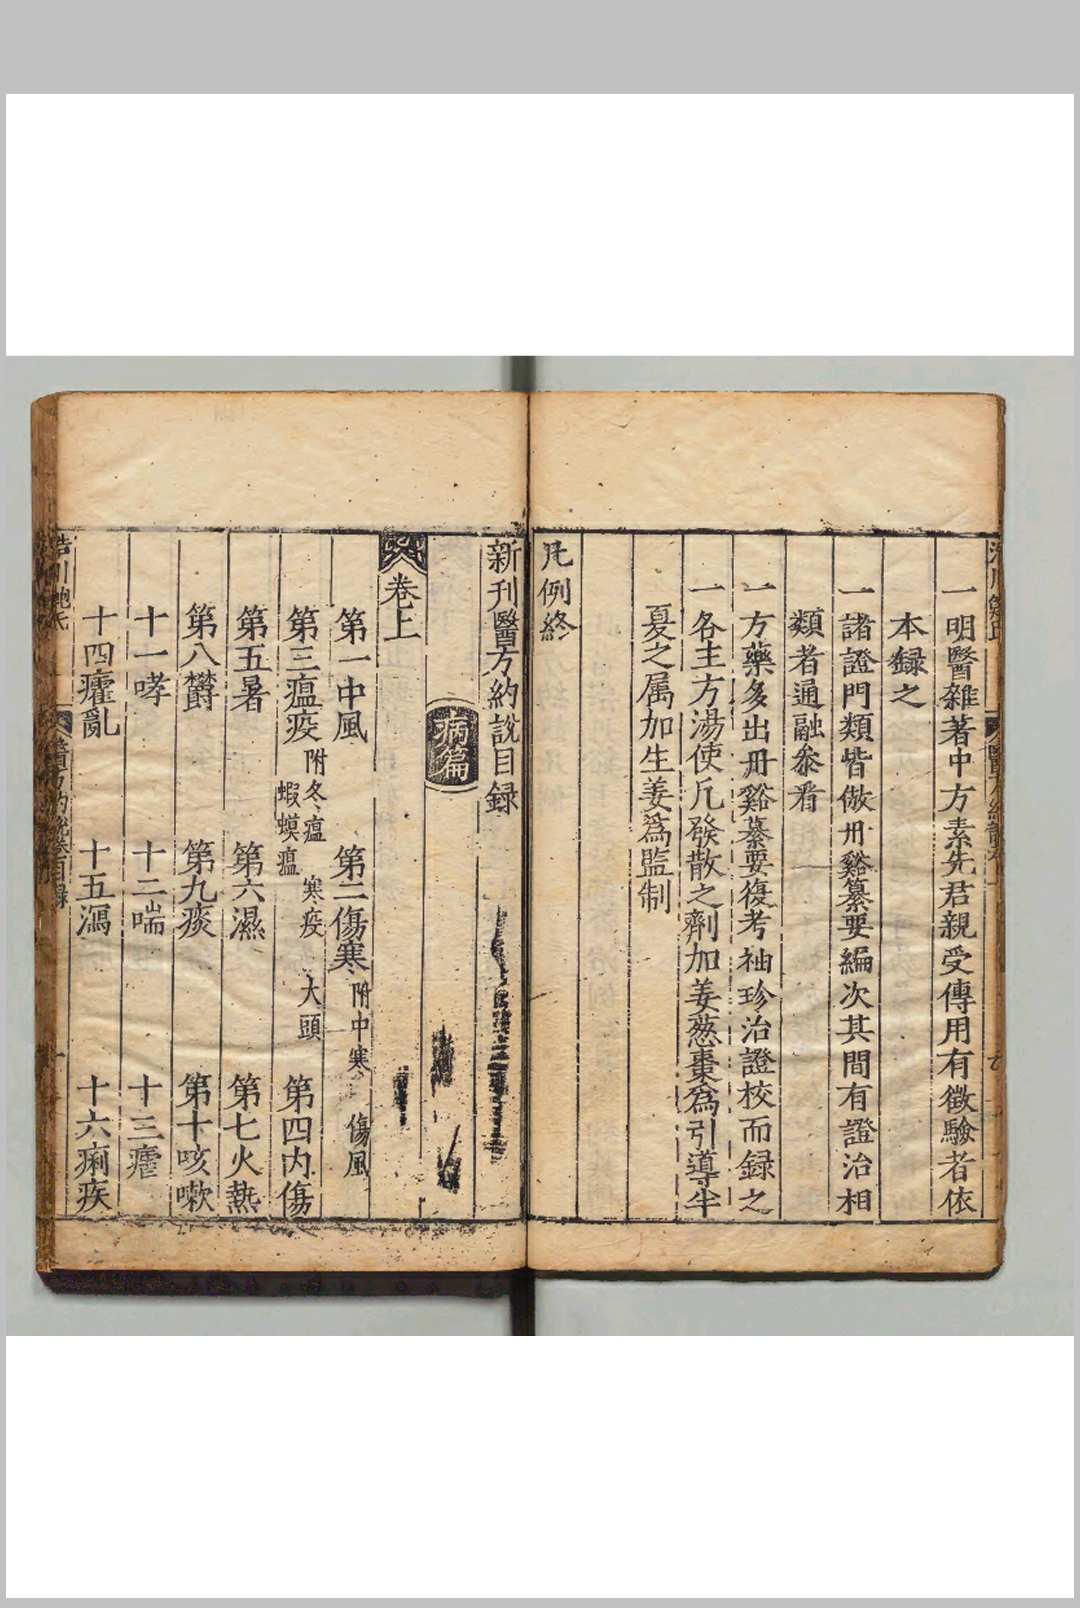 一明醫雜著中方素先君親受傳用有徵驗者依
本録之
一諸證門類皆倣丹谿纂要編次其間有證治相
類者通融叅看
一方藥多出丹谿纂要復考袖珍治證校而録之
一各主方湯使凡發散之劑加姜葱棗爲引導半
夏之属加生姜爲監制
凡例終
新刊醫方約說目録
病篇
卷上
第一中風 第二傷寒 附中寒 傷風
第三瘟疫 附冬瘟 寒疫 大頭 蝦蟆瘟 第四内傷
第五暑 第六濕 第七火熱
第八欝 第九痰 第十咳嗽
十一哮 十二喘 十三瘧
十四癨亂 十五瀉 十六痢疾
醫方約說卷目録